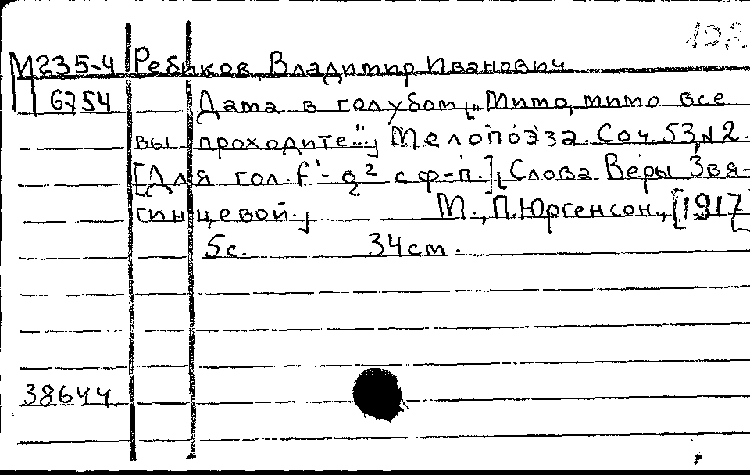 М235-4 Ребиков, Владимир Иванович
6754 Дама в голубом „Мимо, мимо все
вы проходите..." Мелопоэза Соч. 53, №2.
[Для гол. f'-g² с ф-п.] Слова Веры Звя-
гинцевой. М., П. Юргенсон, [1917
5с. 34см.
38644